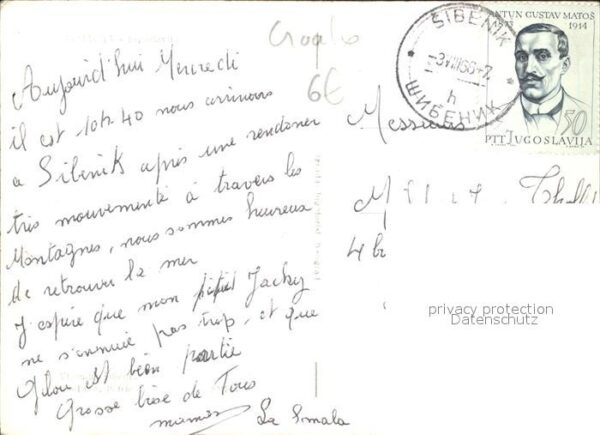 Aujourd'hui Mercredi
il est 10h40 nous arrivons
a Sibenik après une randonée
très mouvementé à travers les
Montagnes, nous sommes heureux
de retrouver la mer
J espère que mon Jacky
ne s'ennuie pas trop, et que
Gilou est bien partie
Grosse bise de Tous
maman
La Smala
6€
ŠIBENIK
ШИБЕНИК
h
ANTUN GUSTAV MATOŠ
1914
50
PTT JUGOSLAVIJA
Messieurs
4 b
privacy protection
Datenschutz